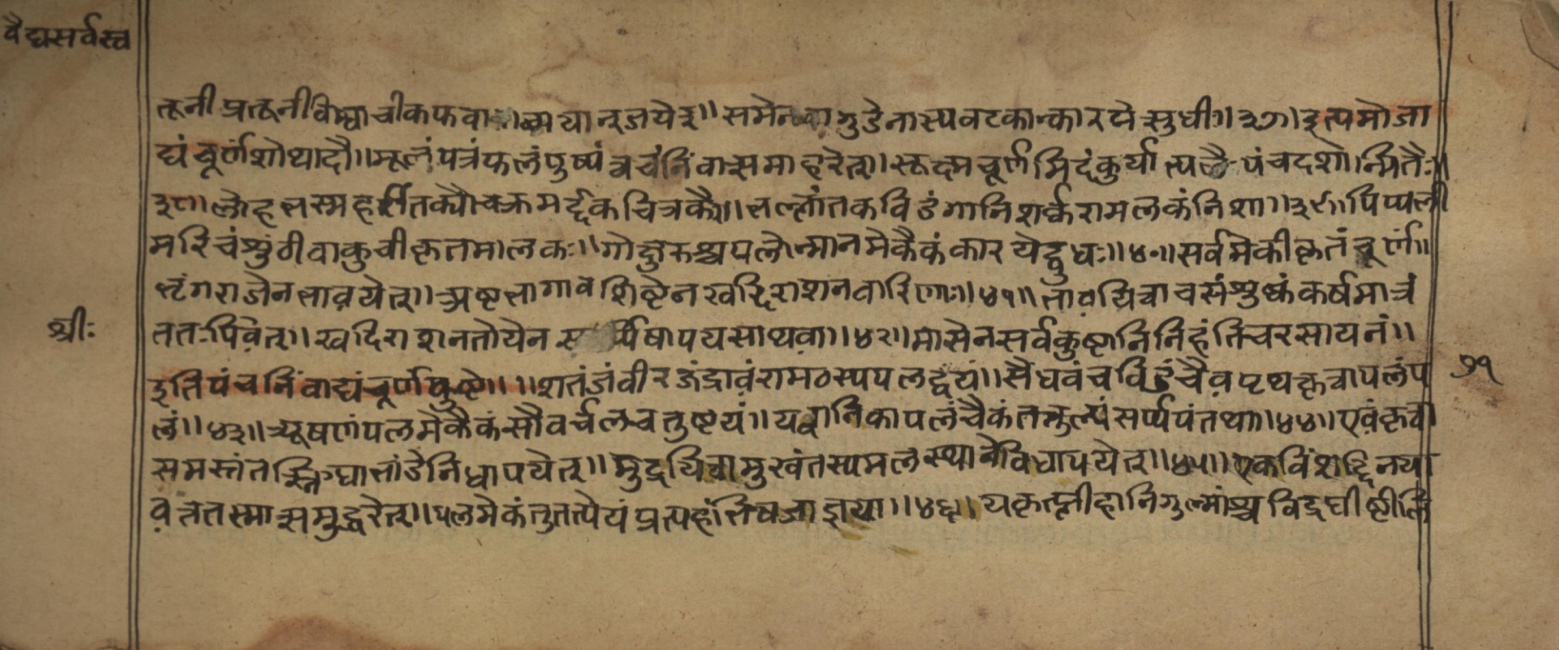 वैद्यसर्वस्व
तूनी प्रतूनी विश्वाची कफवा मयान् जयेत्॥ समेन वा गुडेनास्य वटकान्कारयेत्सुधीः॥३७॥ इत्यमोजा
द्यं चूर्णं शोथादौ॥ मूलं पत्रं फलं पुष्पं त्वचं निंवात्समाहरेत्॥ सूक्ष्मचूर्णमिदं कुर्यात्पलैः पंचदशोन्मितैः॥
३८॥ लोहभस्महरीतक्यौचक्रमर्द्दकचित्रकैः॥ भल्लांतकविडंगानि शर्क्करामलकं निशा॥३९॥ पिप्पली
मरिचं शुंठी वाकुची कृतमालकः॥ गोक्षुरुश्चपलोन्मानमेकैकं कारयेद्बुधः॥४०॥ सर्वमेकीकृतं चूर्णं॥
भृंगराजेन भावयेत्॥ अष्टभागावशिष्टेन खदिराशनवारिणाः॥४१॥ भावयित्वा च संशुष्कं कर्षमात्रं
ततःपिवेत्॥ खदिराशनतोयेन सर्प्पिषा पयसाथवा॥४२॥ मासेन सर्वकुष्टानि निहंति च रसायनं॥
श्रीः
इति पंचनिंवाद्यं चूर्णं कुष्टे॥ ॥ शतं जंवीरजंद्रावं रामठस्य पलद्वयं॥ सैंधवं च विडं चैव पृथकृत्वा पलं प
७१
लं॥४३॥ त्र्यूषणं पलमेकैकं सौवर्चलचतुष्टयं॥ यवानिका पलं चैकं तत्तुल्यं सर्प्पपं तथा॥४४॥ एवं कृत्वा
समस्तं तत्स्निग्धाभांडे निधापयेत्॥ मुद्रयित्वा मुखं तस्य मलस्थाने विधापयेत्॥४५॥ एकविंशद्दिनया
व तत्तस्मात्समुद्धरेत्॥ पलमेकं तु तत्पेयं प्रत्यहं भिषजाज्ञया॥४६॥ यकृत्प्लीहानि गुल्मांश्च विद्रधीष्ठीलि